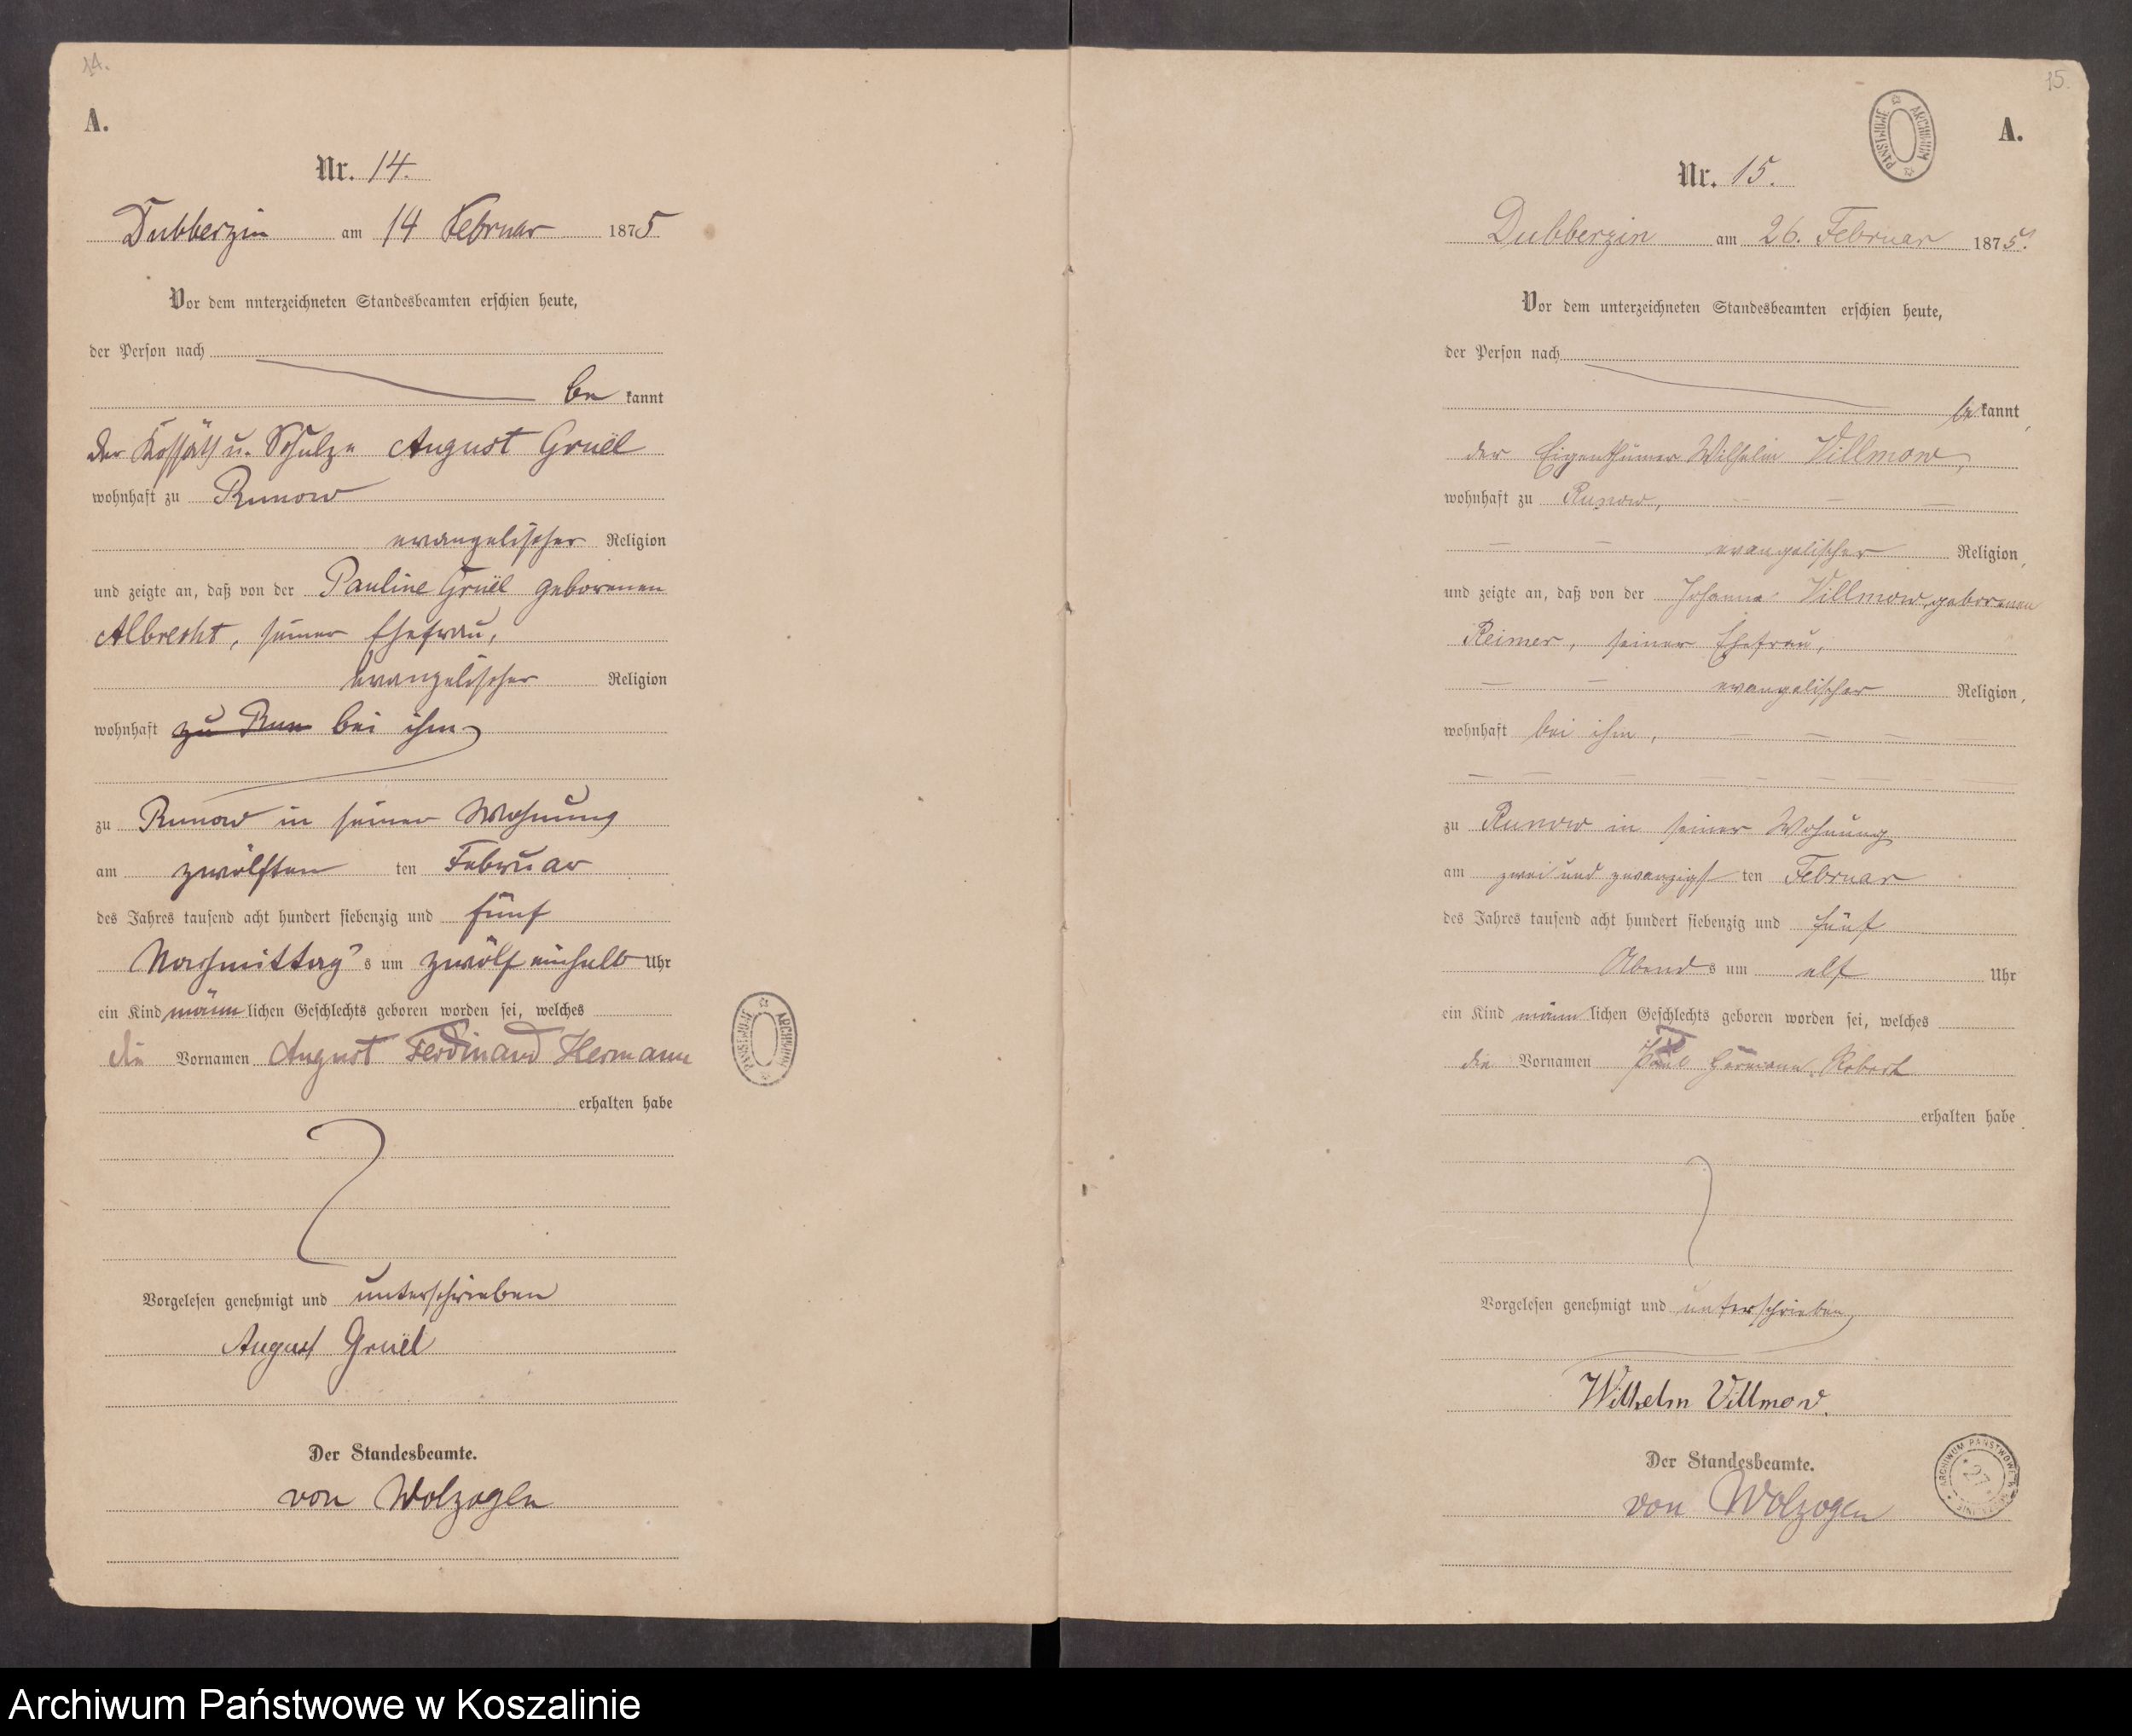 14.
A.
Nr. 14.
Dubberzin am 14 Februar 1875
Vor dem unterzeichneten Standesbeamten erschien heute,
der Person nach
be kannt
der Kossäth u. Schulze August Gruël
wohnhaft zu Runow
evangelischer Religion
und zeigte an, daß von der Pauline Gruël geborenen
Albrecht, seiner Ehefrau,
evangelischer Religion
wohnhaft zu Run bei ihm
zu Runow in seiner Wohnung
am zwölften ten Februar
des Jahres tausend acht hundert siebenzig und fünf
Nachmittag s um zwölf einhalb Uhr
ein Kind männ lichen Geschlechts geboren worden sei, welches
die Vornamen August Ferdinand Hermann
erhalten habe
Vorgelesen genehmigt und unterschrieben
August Gruël
Der Standesbeamte.
von Wolzogen
ARCHIWUM PAŃSTWOWE
15.
A.
ARCHIWUM PAŃSTWOWE
Nr. 15.
Dubberzin am 26. Februar 1875.
Vor dem unterzeichneten Standesbeamten erschien heute,
der Person nach
be kannt,
der Eigenthümer Wilhelm Villmow,
wohnhaft zu Runow,
evangelischer Religion,
und zeigte an, daß von der Johanne Villmow, geborenen
Reimer, seiner Ehefrau,
evangelischer Religion,
wohnhaft bei ihm,
zu Runow in seiner Wohnung
am zwei und zwanzigst ten Februar
des Jahres tausend acht hundert siebenzig und fünf
Abend s um elf Uhr
ein Kind männ lichen Geschlechts geboren worden sei, welches
die Vornamen Paul Hermann Robert
erhalten habe.
Vorgelesen genehmigt und unterschrieben
Wilhelm Villmow.
Der Standesbeamte.
von Wolzogen
ARCHIWUM PAŃSTWOWE
27
Archiwum Państwowe w Koszalinie